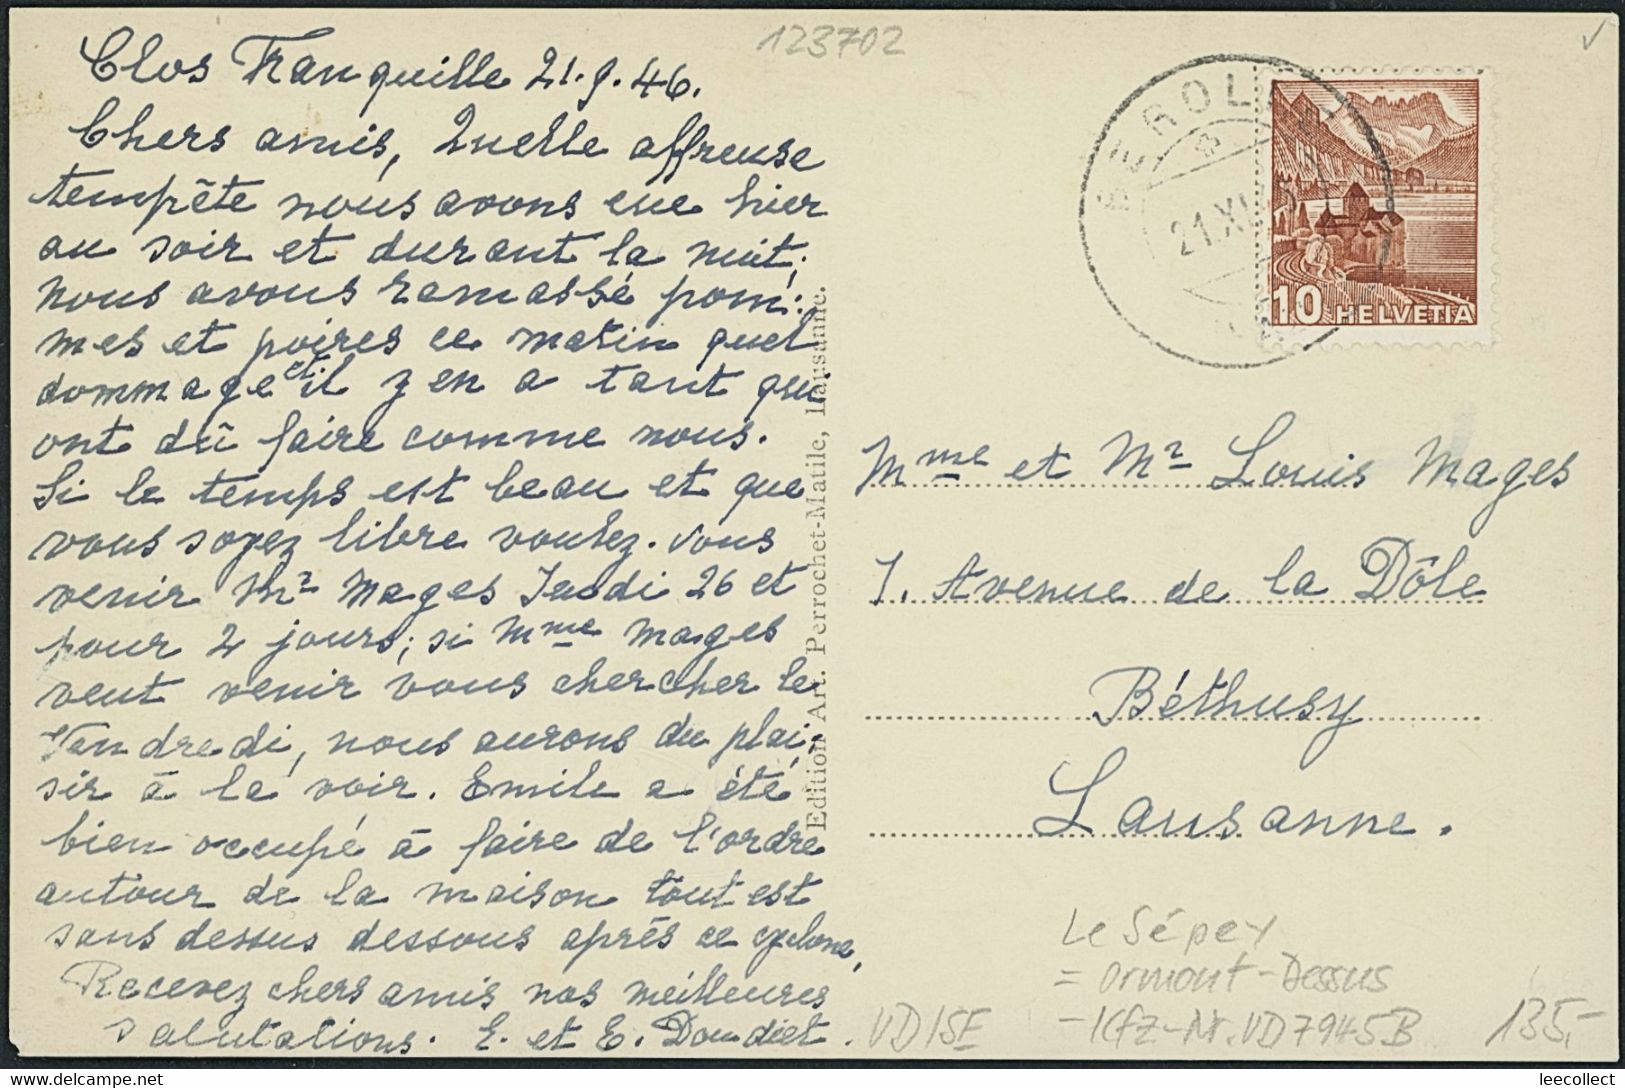 123702
Clos Tranquille 21.9.46.
Chers amis, Quelle affreuse
tempête nous avons eue hier
au soir et durant la nuit,
nous avons ramassé pom:
mes et poires ce matin quel
dommage et il y en a tant qui
ont dû faire comme nous.
Si le temps est beau et que
vous soyez libre voulez-vous
venir Mr Mages Jeudi 26 et
pour 2 jours; si Mme Mages
veut venir vous chercher le
Vendredi, nous aurons du plai-
sir à la voir. Emile a été
bien occupé à faire de l'ordre
autour de la maison tout est
sans dessus dessous après ce cyclone,
Recevez chers amis nos meilleures
salutations. E. et E.
Edition Art. Perrochet-Matile, Lausanne.
BEROL
21.XI
10 HELVETIA
Mme et Mr Louis Mages
1. Avenue de la Dôle
Béthusy
Lausanne.
Le Sépey
= Ormont-Dessus
- Kfz-Nr. VD7945B
VD15E
135,-
leecollect